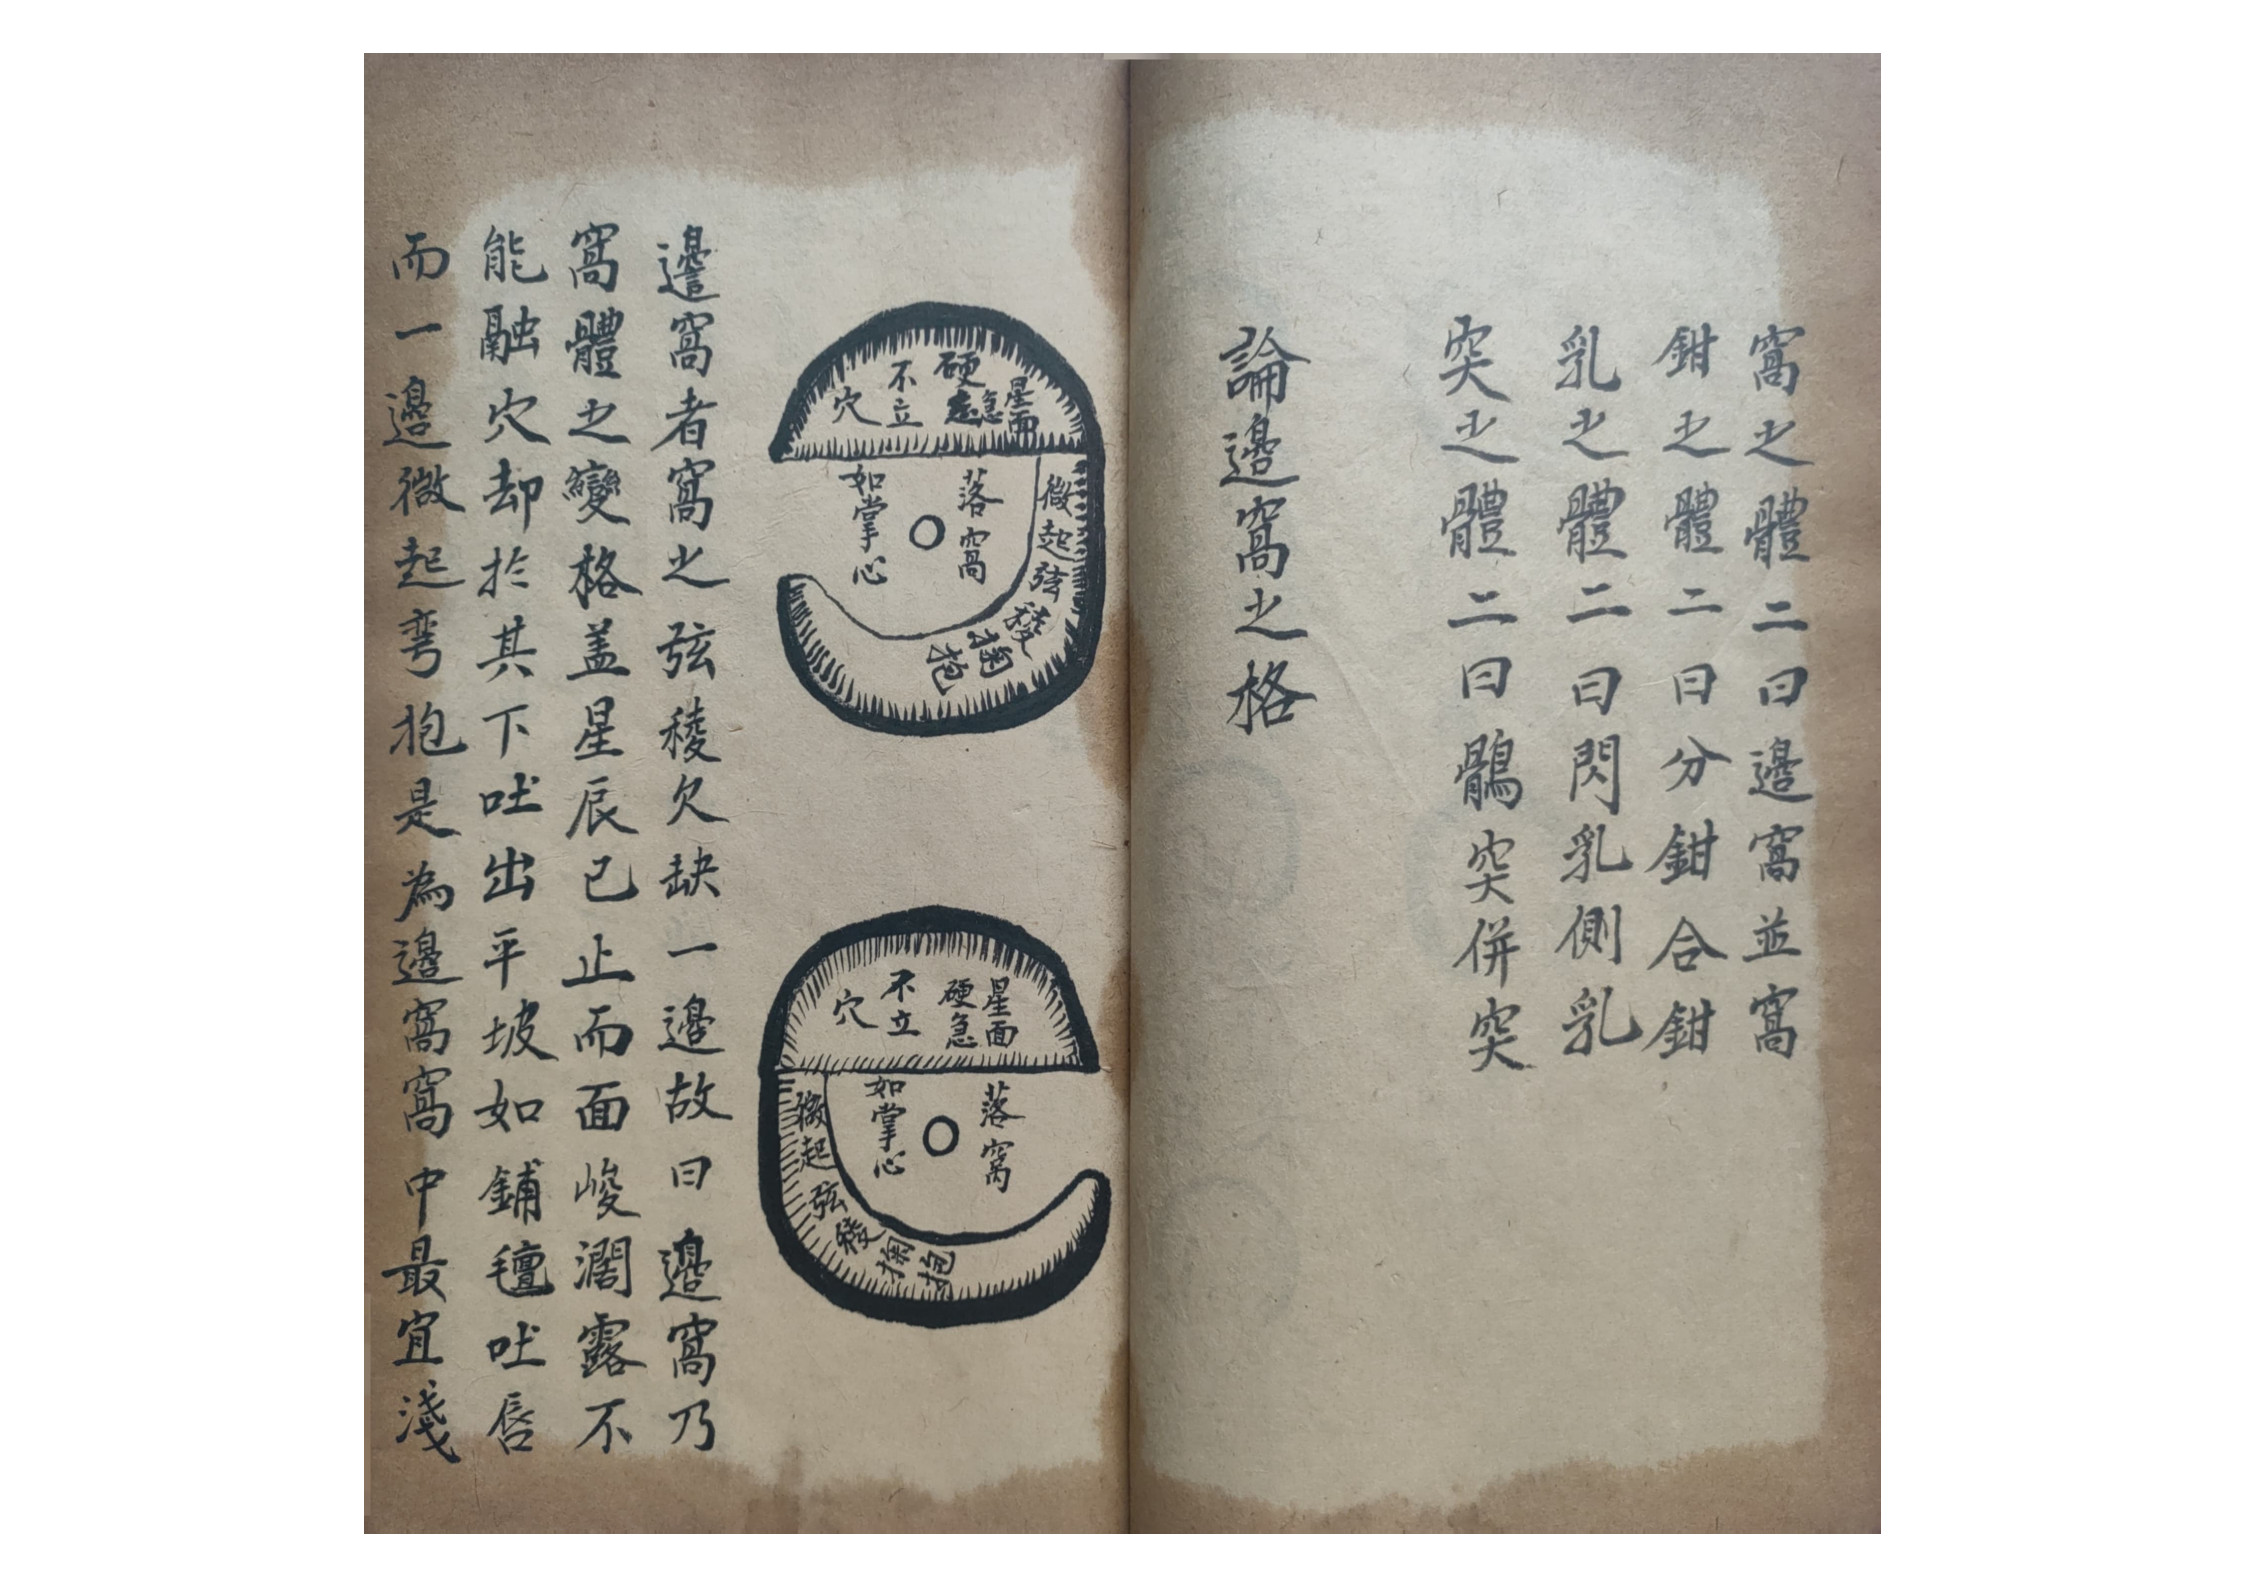 窩之體二曰邊窩並窩
鉗之體二曰分鉗合鉗
乳之體二曰閃乳側乳
突之體二曰鶻突併突
論邊窩之格
星面
硬急
不立
穴
微起弦稜掬抱
落窩
如掌心
星面
硬急
不立
穴
落窩
如掌心
微起弦稜掬抱
邊窩者窩之弦稜欠缺一邊故曰邊窩乃
窩體之變格盖星辰已止而面峻濶露不
能融穴却於其下吐出平坡如鋪氈吐唇
而一邊微起弯抱是為邊窩窩中最宜淺